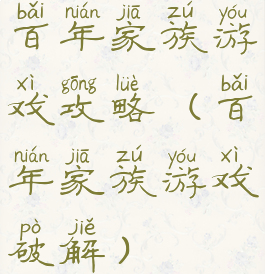 bǎi nián jiā zú yóu
百年家族游
xì gōng lüè bǎi
戏攻略（百
nián jiā zú yóu xì
年家族游戏
pò jiě
破解）